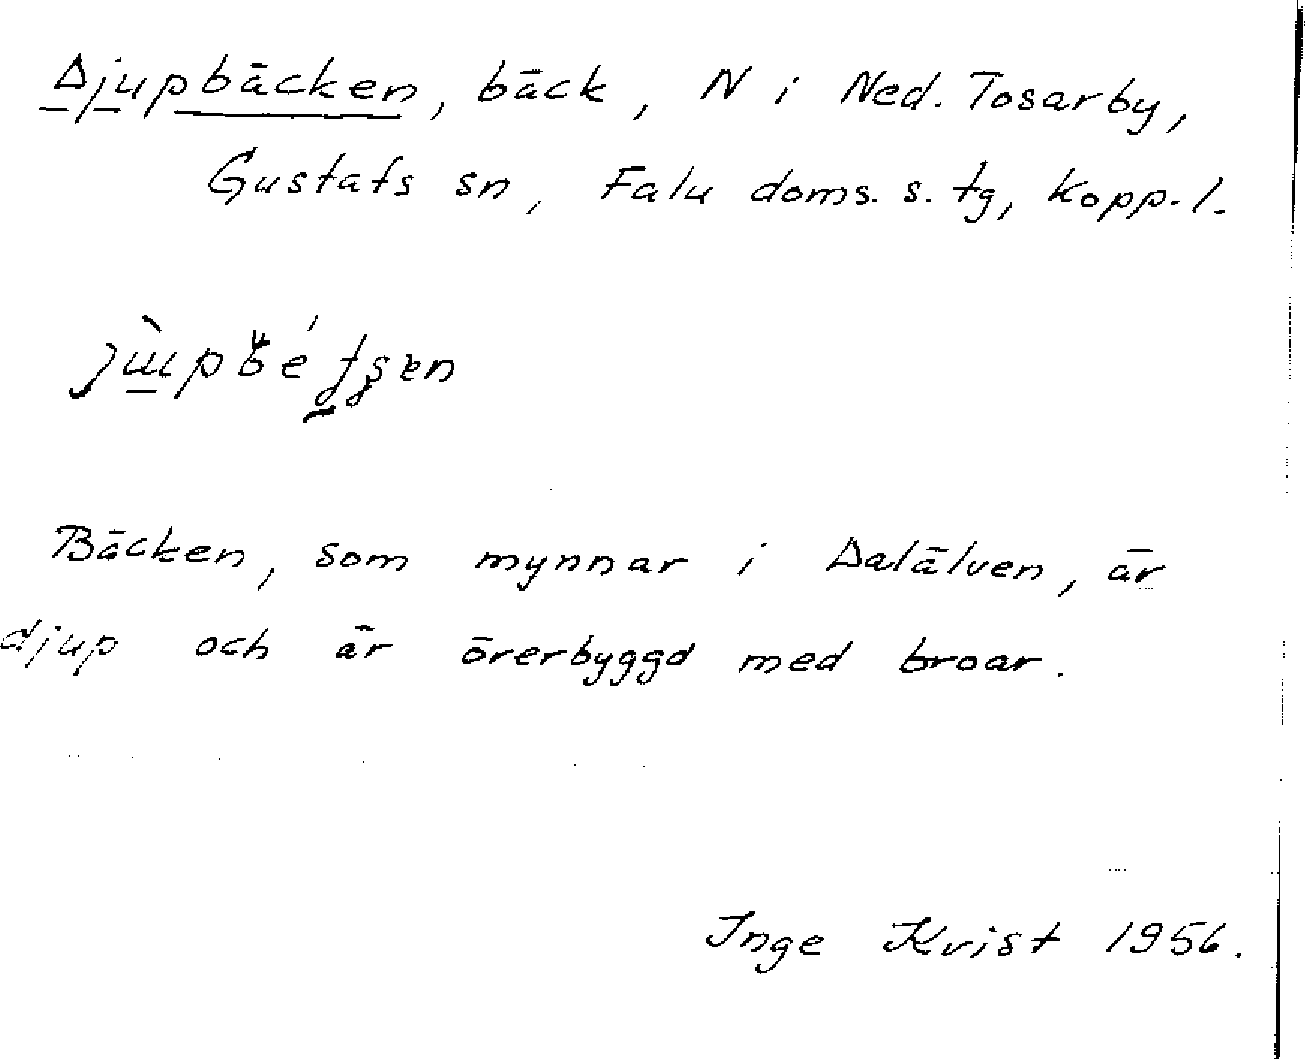 Djupbäcken, bäck, N i Ned. Tosarby,
Gustafs sn, Falu doms. s. tg, Kopp. l.
Bäcken, som mynnar i Dalälven, är
djup och är överbyggd med broar.
Inge Kvist 1956.